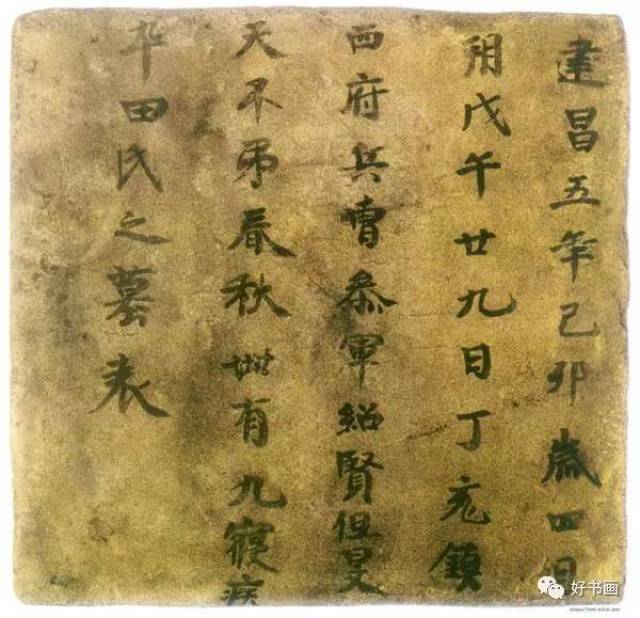 建昌五年己卯歲四月
朔戊午廿九日丁亥鎮
西府兵曹叅軍紹賢但旻
天不弔春秋卌有九寢疾
卒田氏之墓表
好书画